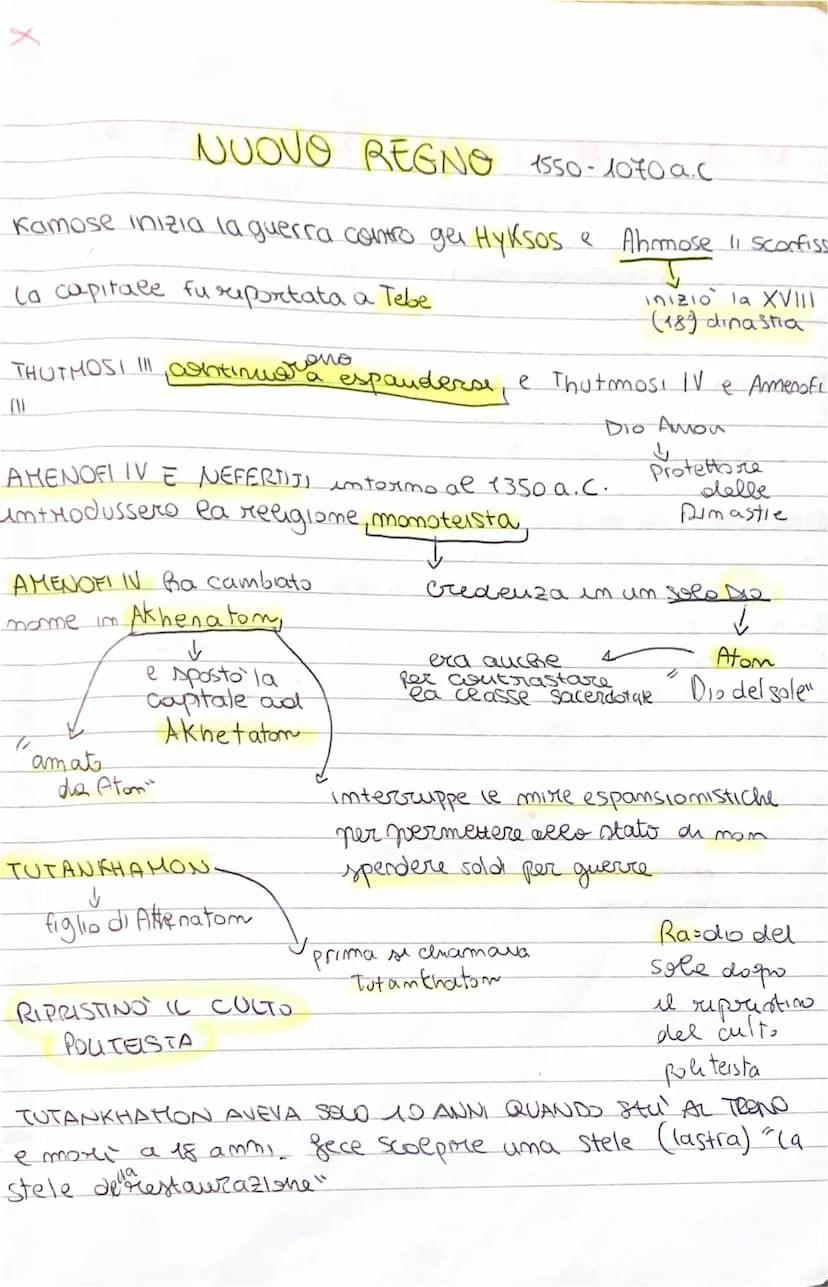 NUOVO REGNO 1550-1070 a.C
Kamose inizia la guerra contro gli Hyksos e Ahmose li sconfiss
la capitale fu riportata a Tebe
iniziò la XVIII
(18ª) dinastia
THUTMOSI III continuarono a espandersi, e Thutmosi IV e Amenofi
III
Dio Amon
protettore
delle
Dinastie
AMENOFI IV E NEFERTITI intorno al 1350 a.C.
introdussero la religione monoteista
credenza in un solo Dio
Atom
"Dio del sole"
era anche
per contrastare
la classe sacerdotale
AMENOFI IV ha cambiato
nome in Akhenatom
e spostò la
capitale ad
AKhetatom
"amato
da Atom"
interruppe le mire espansionistiche
per permettere allo stato di non
spendere soldi per guerre
TUTANKHAMON
figlio di Akhenatom
prima si chiamava
Tutankhatom
RIPRISTINÒ IL CULTO
POLITEISTA
Ra=dio del
sole dopo
il ripristino
del culto
politeista
TUTANKHAMON AVEVA SOLO 10 ANNI QUANDO SALÌ AL TRONO
e morì a 18 anni. fece scolpire una stele (lastra) "la
stele della restaurazione"